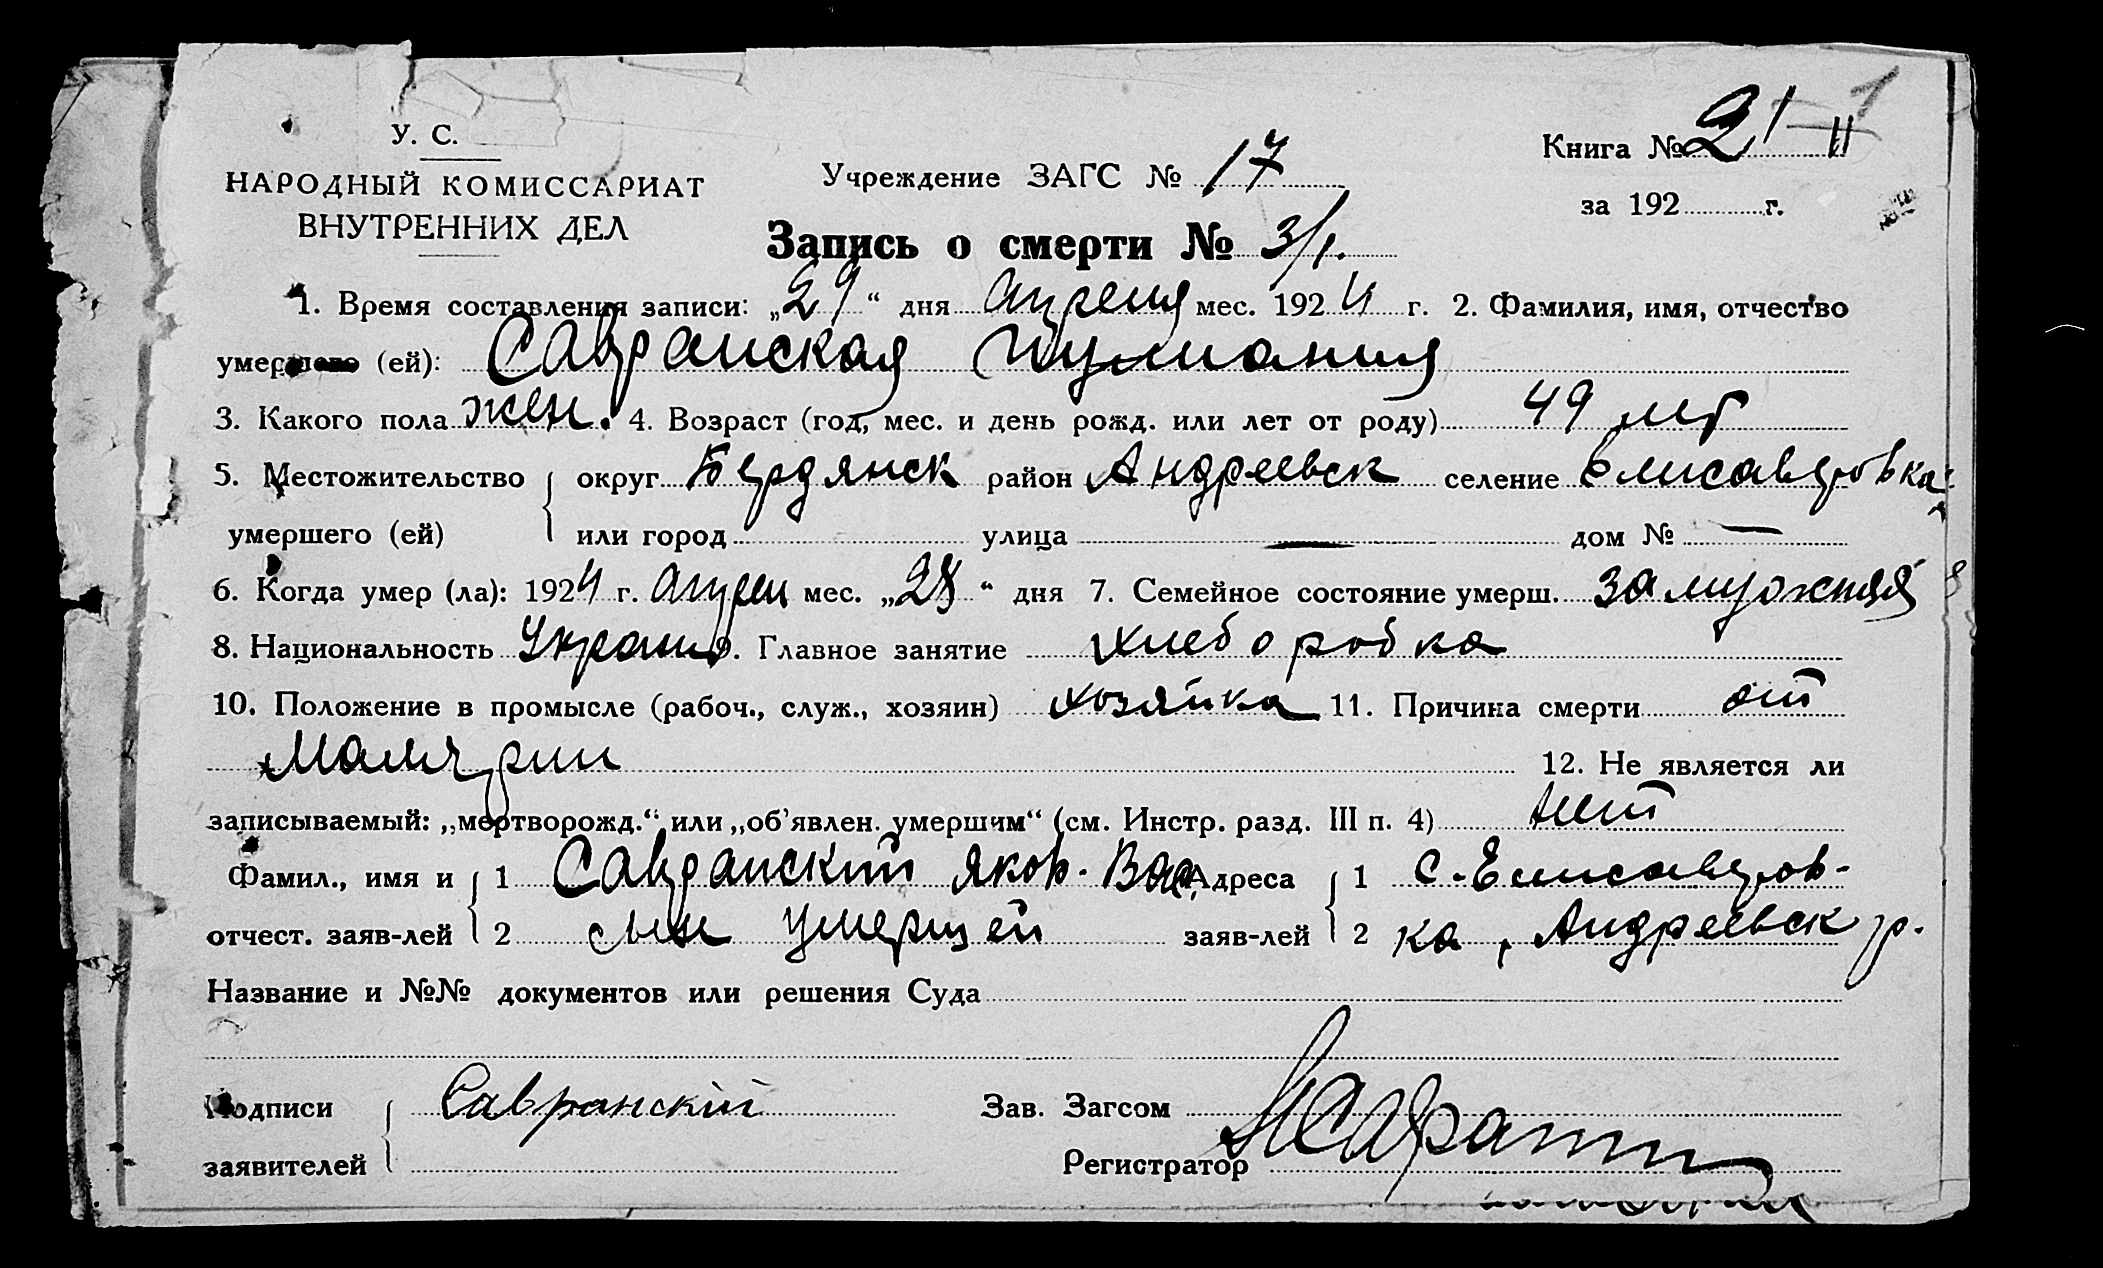 У. С.
НАРОДНЫЙ КОМИССАРИАТ
ВНУТРЕННИХ ДЕЛ
Учреждение ЗАГС № 17
Книга № 21
за 192 г.
Запись о смерти № 3/1.
1. Время составления записи: „29“ дня апреля мес. 1924 г. 2. Фамилия, имя, отчество
умершего (ей): Савранская
3. Какого пола жен. 4. Возраст (год, мес. и день рожд. или лет от роду) 49 лет
5. Местожительство округ Бердянск район Андреевск селение Елисаветровка
умершего (ей) или город улица — дом № —
6. Когда умер (ла): 1924 г. апрел мес. „28“ дня 7. Семейное состояние умерш. замужняя
8. Национальность Украин 9. Главное занятие хлеборобка
10. Положение в промысле (рабоч., служ., хозяин) хозяйка 11. Причина смерти от
Малярии 12. Не является ли
записываемый: „мертворожд.“ или „об'явлен. умершим“ (см. Инстр. разд. III п. 4) нет
Фамил., имя и 1 Савранский Яков. Вас. Адреса 1 с. Елисаветров-
отчест. заяв-лей 2 сын умершей заяв-лей 2 ка, Андреевск р.
Название и №№ документов или решения Суда
Подписи Савранский Зав. Загсом
заявителей Регистратор